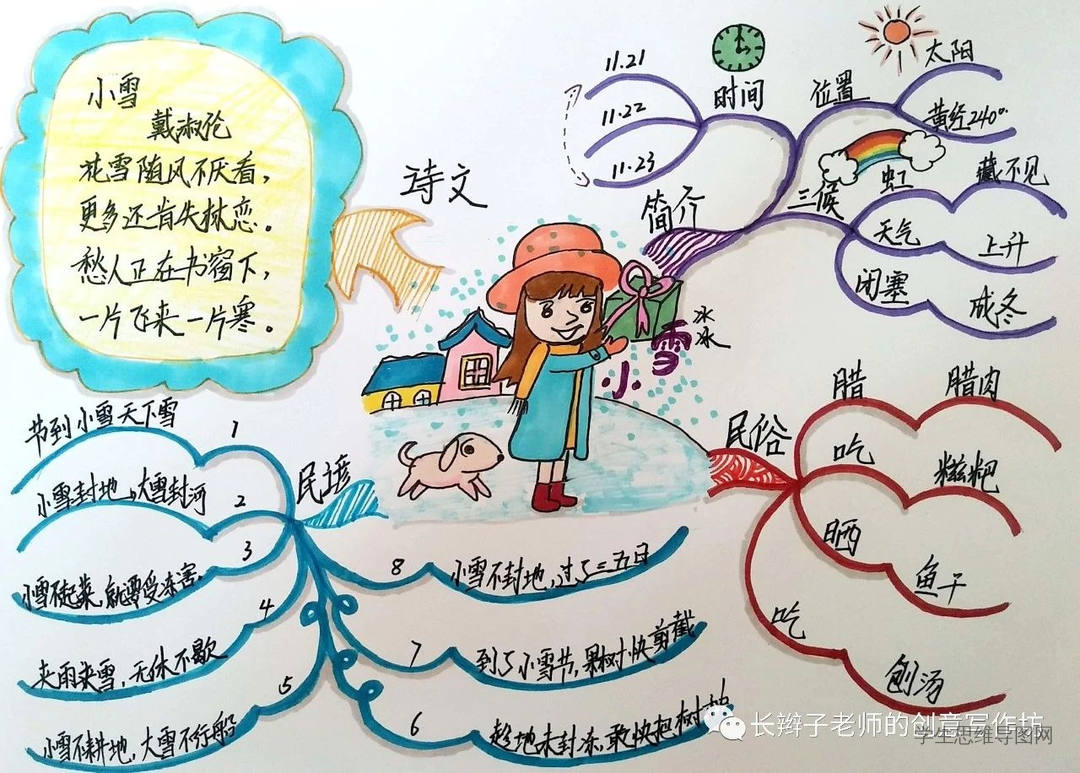 小雪
戴淑伦
花雪随风不厌看，
更多还肯失林恋。
愁人正在书窗下，
一片飞来一片寒。
诗文
11.21
11.22
11.23
时间
位置
太阳
黄经240°
简介
三候
虹
藏不见
天气
上升
闭塞
成冬
冰
冰
小雪
民俗
腊
腊肉
吃
糍粑
晒
鱼干
吃
刨汤
民谚
1
节到小雪天下雪
2
小雪封地，大雪封河
3
小雪不起菜，就要受冻害，
4
夹雨夹雪，无休不歇
5
小雪不耕地，大雪不行船
8
小雪不封地，过了三五日
7
到了小雪节，果树快剪截
6
趁地未封冻，敢快把树
长辫子老师的创意写作坊
学生思维导图网